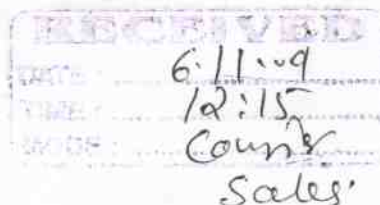 RECEIVED
DATE : 6.11.09
TIME : 12:15
MODE : Courier
Sales.